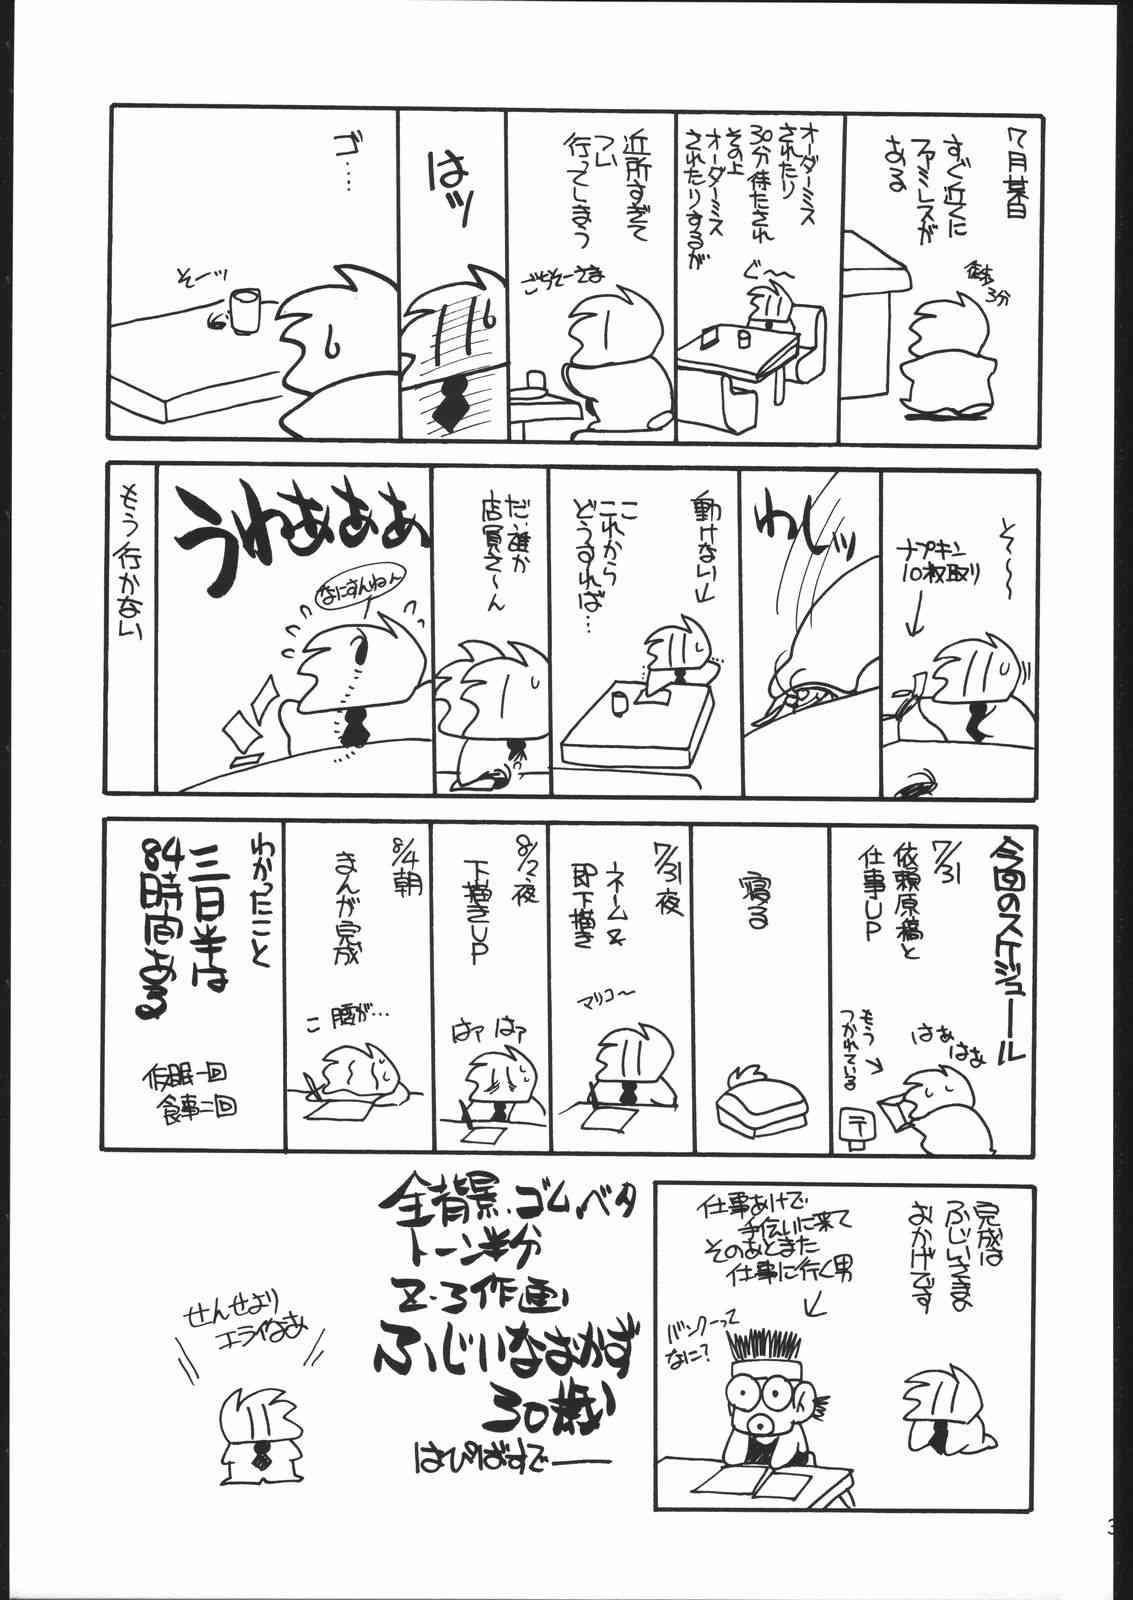 7月某日
すぐ近くに
ファミレスが
ある
徒歩
3分
オーダーミス
されたり
30分待たされ
その上
オーダーミス
されたりするが
ぐ〜
近所すぎて
つい
行ってしまう
ごちそーさま
はッ
ゴ……
そーッ
そ〜〜〜
ナプキン
10枚取り
わしッ
動けない
こ
これから
どうすれば…
だ、誰か
店員さ〜ん
うわぁぁぁ
なにすんねん
もう行かない
今回のスケジュール
7/31
依頼原稿と
仕事UP
はぁはぁ
もう
つかれている
〒
寝る
7/31夜
ネーム&
即下描き
マリコ〜
8/2夜
下描きUP
はァ はァ
8/4朝
まんが完成
こ 腰が…
わかったこと
三日半は
84時間ある
仮眠一回
食事二回
完成は
ふじいさまの
おかげです
仕事あけで
手伝いに来て
そのあとまた
仕事に行く男
バンクーって
なに?
全背景、ゴム、ベタ
トーン半分
Z・3作画
ふじいなおかず
30歳
はぴばすでー
せんせより
エライなぁ
3